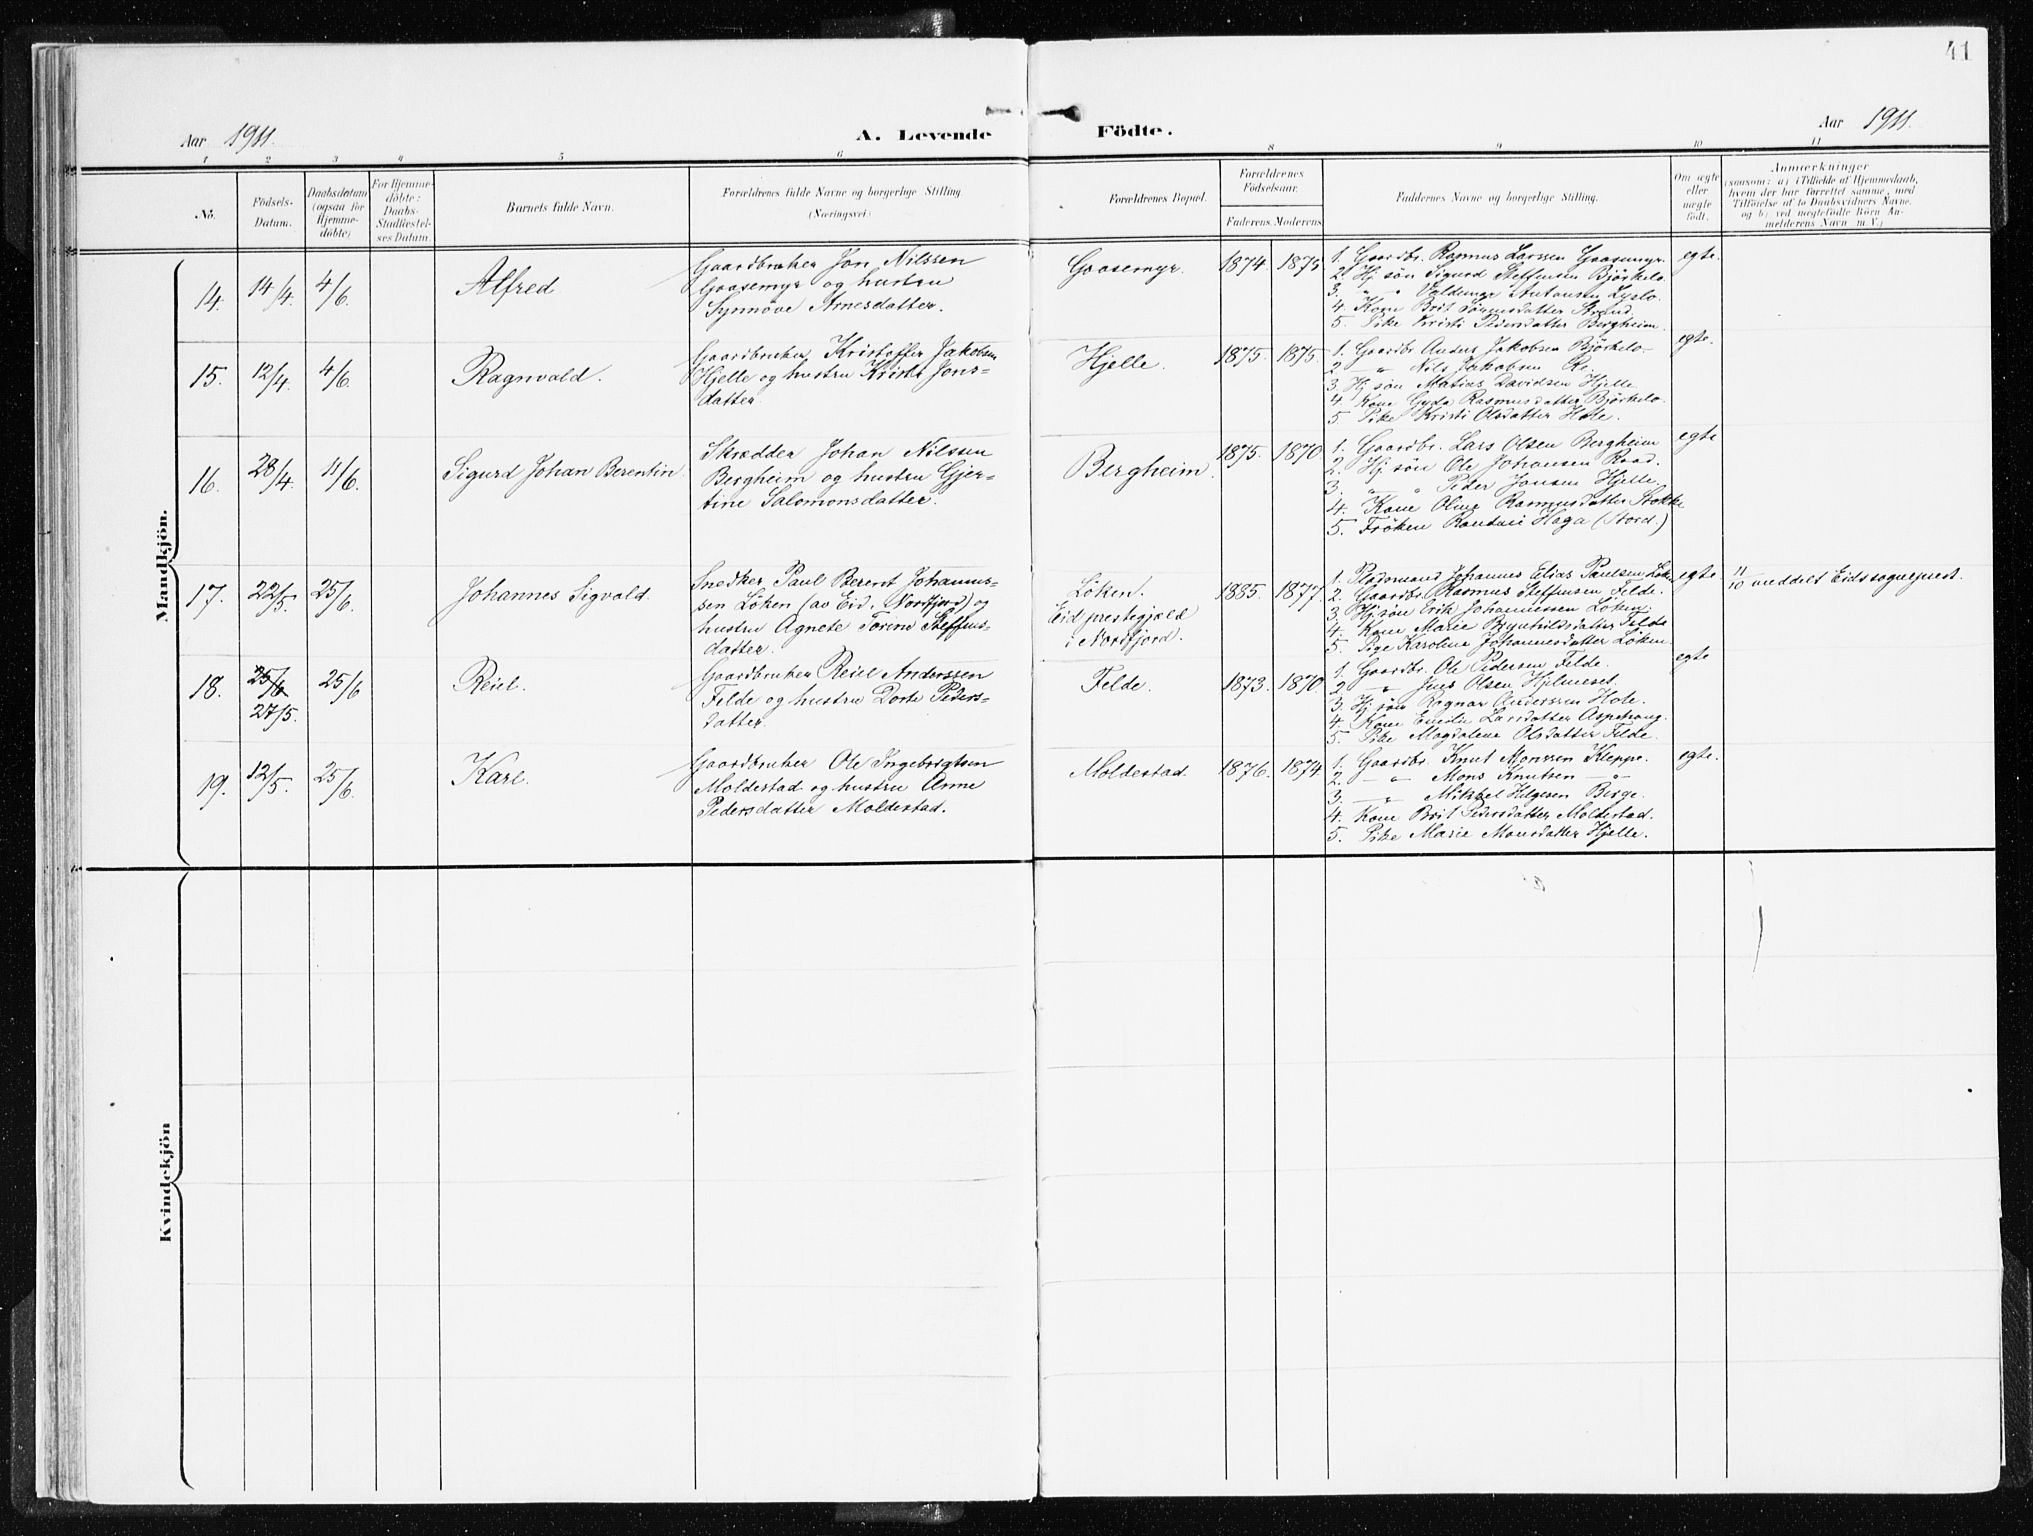 41
Aar 1911.
A. Levende Födte.
Aar 1911.
1 2 3 4 5 6 8 9 10 11
No.
Födsels-
Datum.
Daabsdatum
(ogsaa for
Hjemme-
döbte)
For Hjemme-
döbte:
Daabs-
Stadfestel-
ses Datum.
Barnets fulde Navn.
Forældrenes fulde Navne og borgerlige Stilling.
(Næringsvei.)
Forældrenes Bopæl.
Forældrenes
Födselsaar.
Faderens. Moderens.
Faddernes Navne og borgerlige Stilling.
Om ægte
eller
uægte
födt.
Anmærkninger
(saasom: a) i Tilfælde af Hjemmedaab,
hvem der har forrettet samme, med
Tilföielse af to Daabsvidners Navne.
og b) ved uægtefödte Börn An-
melderens Navn m. V.)
Mandkjön.
14. 14/4. 4/6. Alfred.
Gaardbruker Jon Nilssen
Gaasemyr og hustru
Synnöve Arnesdatter.
Gaasemyr. 1874. 1875
1. Gaardbr. Rasmus Larssen Gaasemyr.
2. Hj. sön Sigurd Steffensen Björkelo.
3. " " Valdemar Antonsen Lyslo.
4. Kone Brit Sönnesdatter Strand.
5. Pike Kristi Pedersdatter Bergheim.
egte.
15. 12/4. 4/6. Ragnvald.
Gaardbruker Kristoffer Jakobsen
Hjelle og hustru Kristi Jons-
datter.
Hjelle. 1875. 1875.
1. Gaardbr. Anders Jakobsen Björkelo.
2. — " Nils Jakobsen Re.
3. Hj. sön Matias Davidsen Hjelle
4. Kone Gyda Rasmusdatter Björkelo.
5. Pike Kristi Olsdatter Hole.
egte.
16. 28/4. 11/6. Sigurd Johan Berentin.
Skrædder Johan Nilssen
Bergheim og hustru Gjer-
tine Salomonsdatter.
Bergheim. 1875. 1870
1. Gaardbr. Lars Olsen Bergheim
2. Hj. sön Ole Johansen Raad.
3. " " Peder Jonsen Hjelle.
4. Kone Oline Rasmusdatter Stokke
5. Fröken Haga (Stord.)
egte
17. 22/5. 25/6. Johannes Sigvald.
Snedker Paul Berent Johannes-
sen Löken (av Eid, Nordfjord) og
hustru Agnete Torine Steffens-
datter.
Löken.
Eid prestegjæld
i Nordfjord.
1885. 1877
1. Johannes Elias Paulsen Löken
2. Gaardbr. Rasmus Steffensen Felde.
3. Hj. sön Erik Johannessen Löken.
4. Kone Marie Brynhildsdatter Felde
5. Pige Karoline Johannesdatter Löken.
egte
11/10 meddelt Eids sogneprest.
18. 25/6 27/5. 25/6 Reiel.
Gaardbruker Reiel Anderssen
Felde og hustru Dorte Peders-
datter.
Felde. 1873. 1870.
1. Gaardbr. Ole Pedersen Felde.
2. — " Jens Olsen Hjelmeset.
3. Hj. sön Ragnar Anderssen Hole.
4. Kone Emilie Larsdatter
5. Pike Magdalene Olsdatter Felde.
egte
19. 12/5. 25/6. Karl.
Gaardbruker Ole Ingebrigtsen
Moldestad og hustru Anne
Pedersdatter Moldestad.
Moldestad. 1876. 1874
1. Gaardbr. Knut Monssen Kleppe.
2. — " Mons Knutsen — " —
3. — " Mikkel Helgesen Berge.
4. Kone Brit Pedersdatter Moldestad.
5. Pike Marie Monsdatter Hjelle.
egte.
Kvindekjön